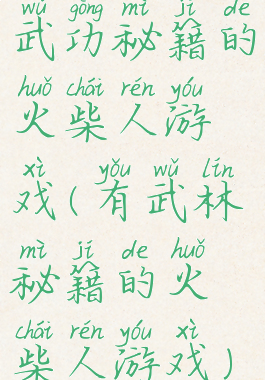 wǔ gōng mì jí de
武功秘籍的
huǒ chái rén yóu
火柴人游
xì yǒu wǔ lín
戏(有武林
mì jí de huǒ
秘籍的火
chái rén yóu xì
柴人游戏)